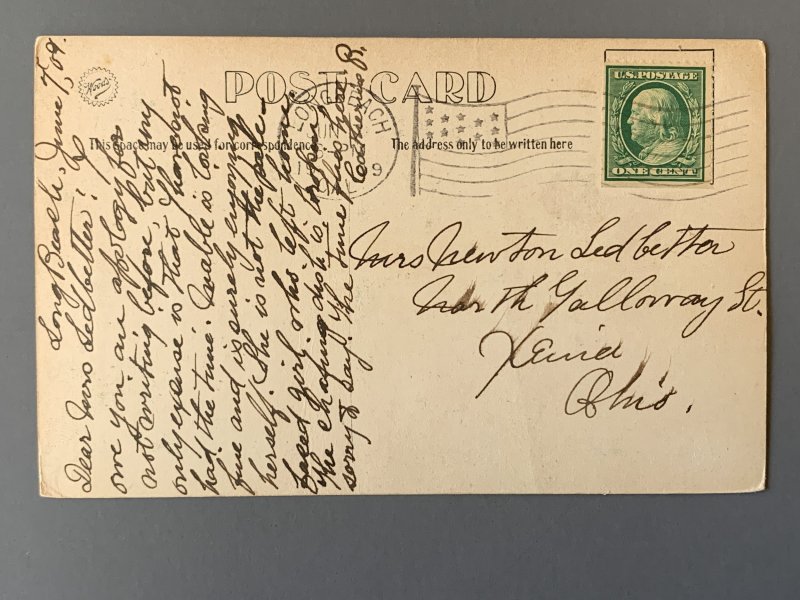 POST CARD
This space may be used for correspondence
The address only to be written here
Woods
U.S. POSTAGE
ONE CENT
LONG BEACH
Long Beach, June 7, 09.
Dear Mrs Ledbetter: I
owe you an apology for
not writing before, but my
only excuse is that I have not
had the time. Mable is looking
fine and is surely enjoying
herself. She is not the pale
faced girl who left home.
The Chafing dish is
sorry to say. No time
Mrs Newton Ledbetter
North Galloway St.
Xenia
Ohio.